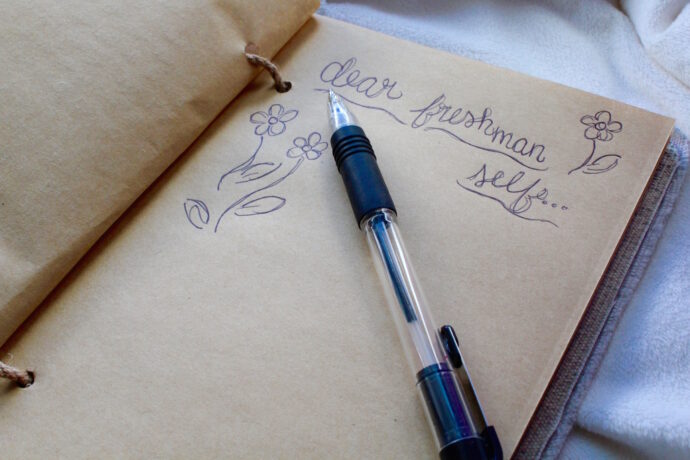 dear freshman
self...